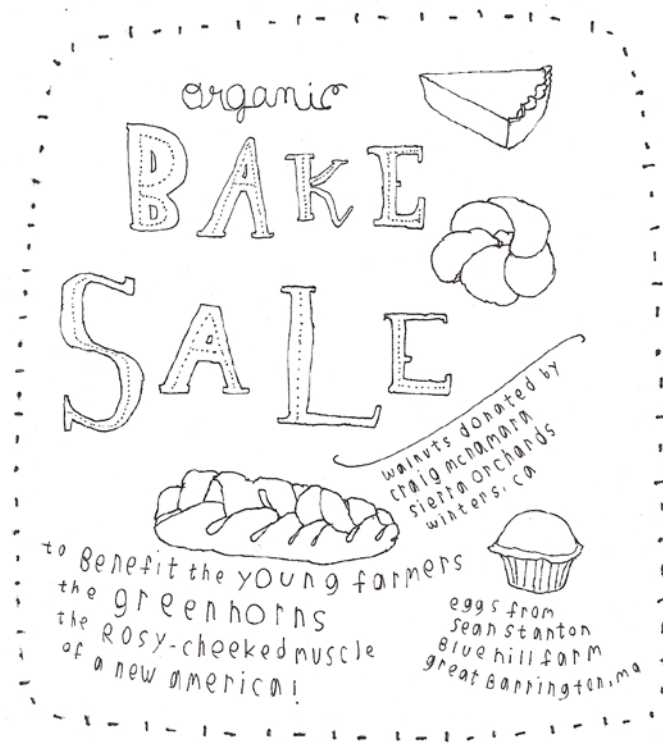 organic
BAKE
SALE
walnuts donated by
craig mcnamara
sierra orchards
winters, ca
to Benefit the young farmers
the greenhorns
the Rosy-cheeked muscle
of a new america!
eggs from
sean stanton
Blue hill farm
great Barrington, ma